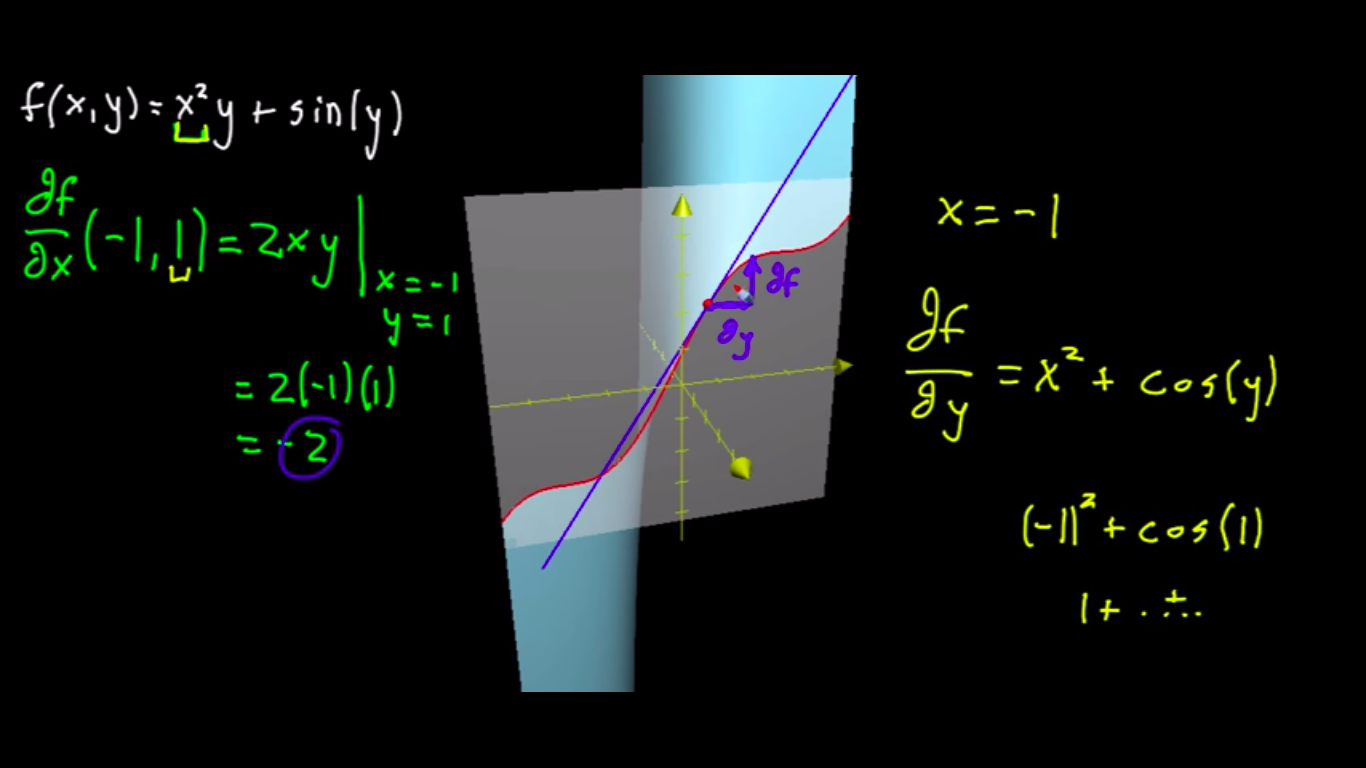 f(x,y) = x²y + sin(y)
∂f/∂x (-1, 1) = 2xy | x = -1
y = 1
= 2(-1)(1)
= -2
∂f
∂y
x = -1
∂f/∂y = x² + cos(y)
(-1)² + cos(1)
1 +